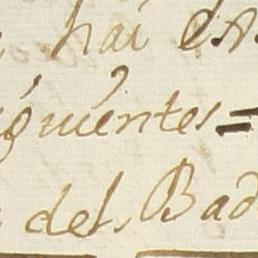 hai en
siguientes =
del Bad